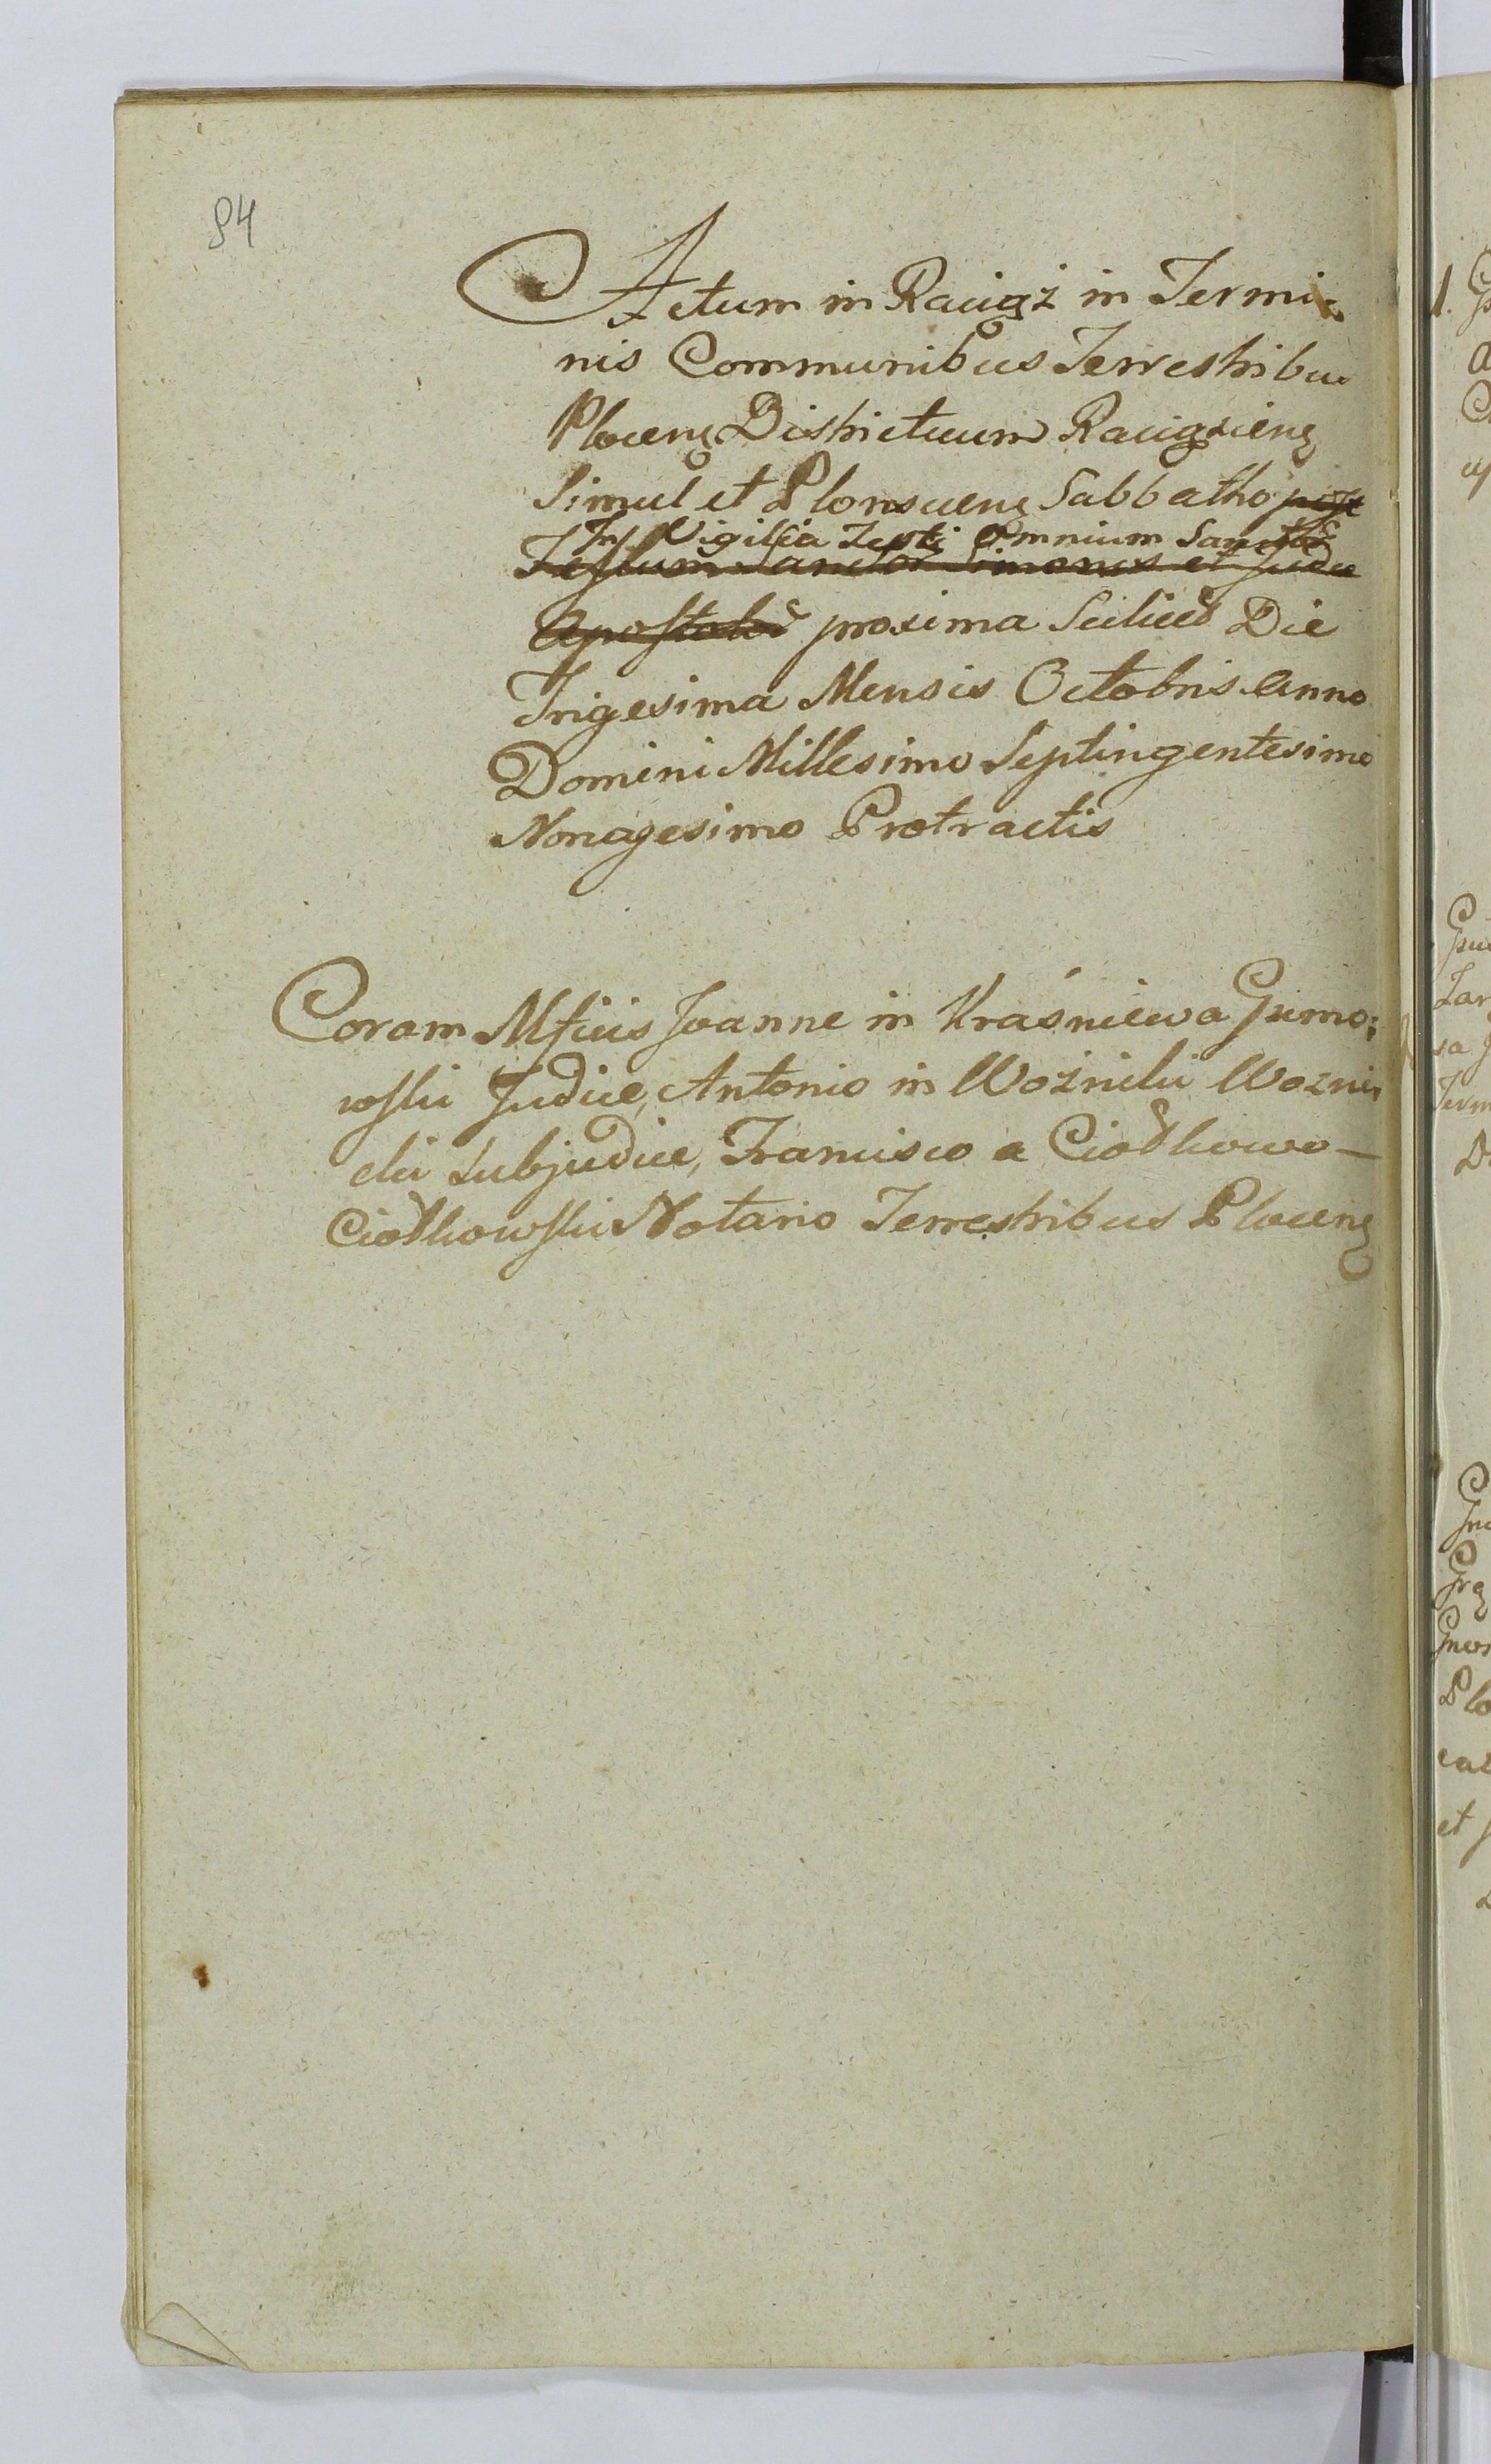 84
Actum in Raciąż in Termi-
nis Communibus Terrestribus
Plocens Districtuum Raciążiens
Simul et Plonscens Sabbatho post
In Vigilia Festi Omnium Sanctor
Festum Sanctor Simonis et Judae
Apostolor proxima Scilicet Die
Trigesima Mensis Octobris Anno
Domini Millesimo Septingentesimo
Nonagesimo Protractis
Coram Mficis Joanne in Kraśniewo Gumo-
wski Judice, Antonio in Woźniki Wozni
cki Subjudice, Francisco a Ciołkowo -
Ciołkowski Notario Terrestribus Plocens